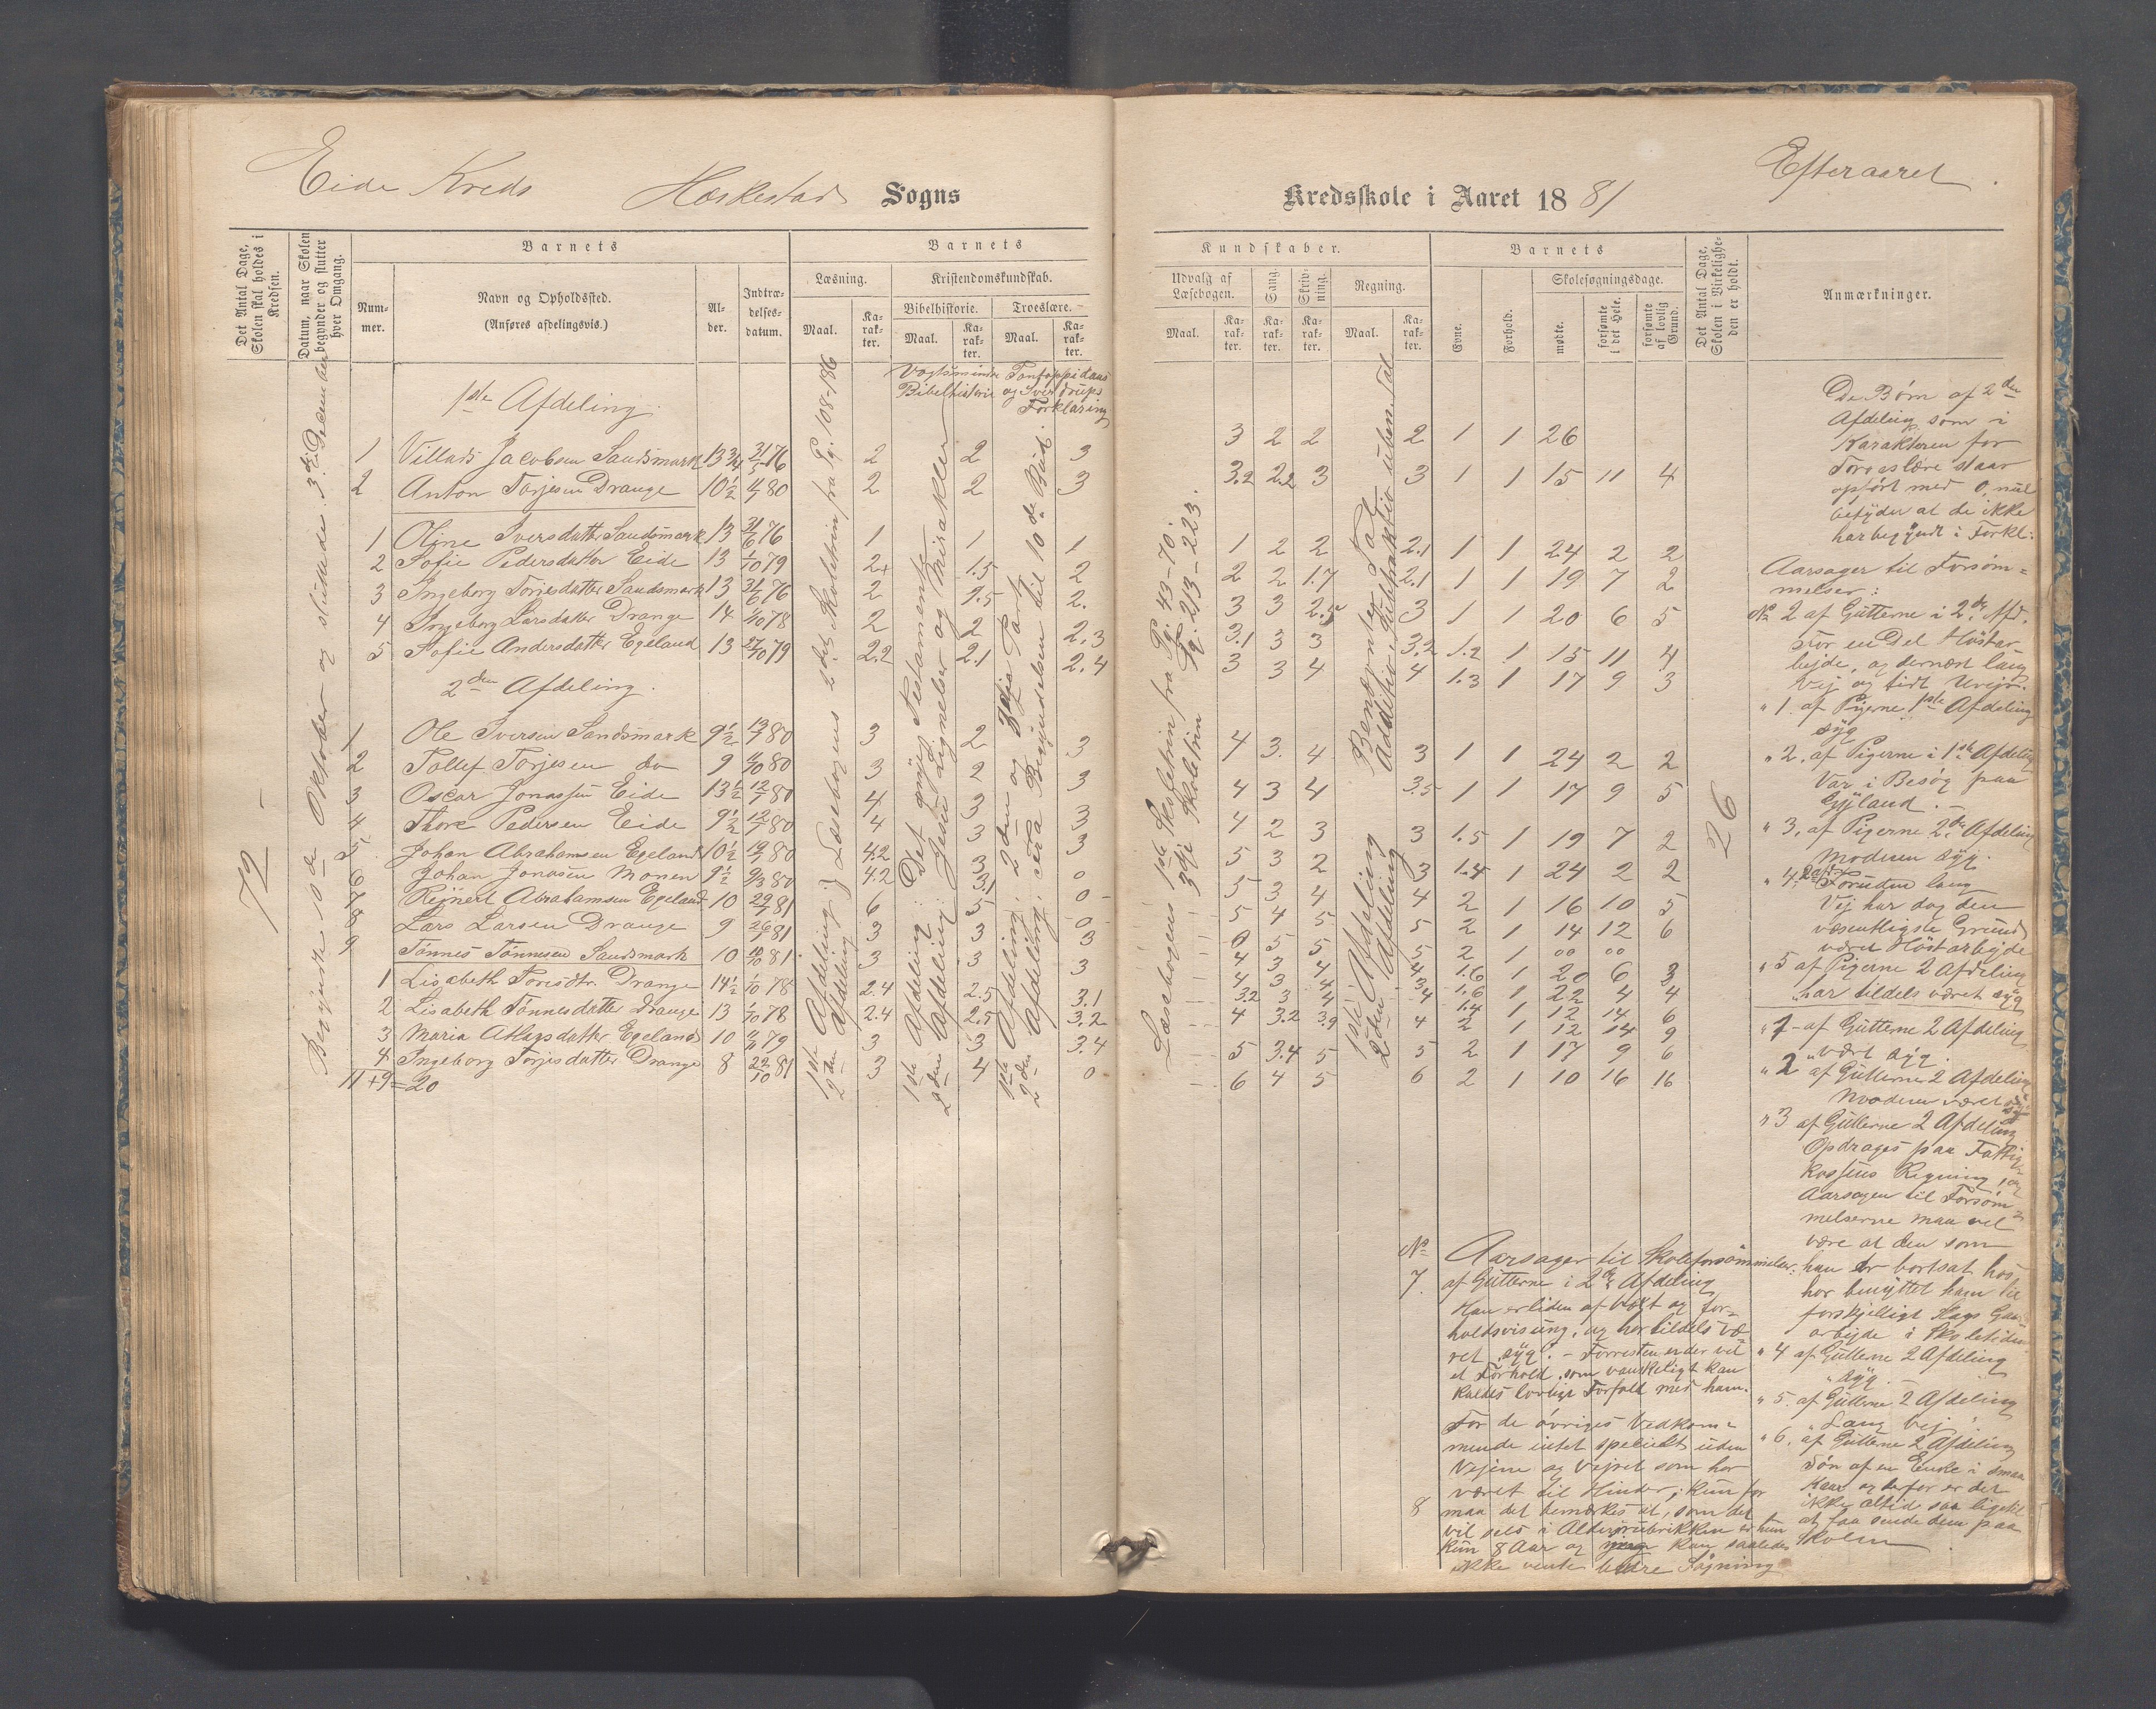 Eide Kreds Heskestad Sogns
Kredsskole i Aaret 1881 Efteraaret
Det Antal Dage, Skolen skal holdes i Kredsen.
Datum, naar Skolen begynder og slutter hver Omgang.
Barnets
Nummer.
Navn og Opholdssted.
(Anføres afdelingsvis.)
Alder.
Indtrædelsesdatum.
Barnets
Læsning.
Maal.
Karakter.
Kristendomskundskab.
Bibelhistorie.
Maal.
Karakter.
Troeslære.
Maal.
Karakter.
Kundskaber.
Udvalg af Læsebogen.
Maal.
Karakter.
Sang.
Karakter.
Skrivning.
Karakter.
Regning.
Maal.
Karakter.
Barnets
Evne.
Forhold.
Skolesøgningsdage.
mødte.
forsømte i det Hele.
forsømte af lovlig Grund.
Det Antal Dage, Skolen i Virkeligheden er holdt.
Anmærkninger.
72
Begyndte 10de Oktober og sluttede 3die December
Vogts mindre Bibelhistorie
Pontoppidans og Sverdrups Forklaring
1ste Afdeling
1 Villads Jacobsen Sandsmark 13 3/4 31/5 76 2 2 3
2 Anton Torjesen Drange 10 1/2 4/7 80 2 2 3
1 Oline Iversdatter Sandsmark 13 31/6 76 1 1 1
2 Sofie Pedersdatter Eide 13 1/10 79 2+ 1.5 2
3 Ingeborg Torjesdatter Sandsmark 13 31/6 76 2 1.5 2.
4 Ingeborg Larsdatter Drange 14 1/10 78 2 2 2.3
5 Sofie Andersdatter Egeland 13 27/10 79 2.2 2.1 2.4
2den Afdeling.
1 Ole Iversen Sandsmark 9 1/2 13/7 80 3 2 3
2 Tollef Torjesen do 9 4/10 80 3 2 3
3 Oscar Jonassen Eide 13 1/2 12/7 80 4 3 3
4 Thore Pedersen Eide 9 1/2 12/7 80 4 3 3
5 Johan Abrahamsen Egeland 10 1/2 19/7 80 4.2 3 0
6 Johan Jonasen Monen 9 1/2 9/3 80 4.2 3.1 0
7 Rejnert Abrahamsen Egeland 10 29/7 81 6 5 0
8 Lars Larsen Drange 9 26/7 81 3 3 3
9 Tønnes Tønnesen Sandsmark 10 10/10 81 3 3 3
1 Lisabeth Toresdtr. Drange 14 1/2 1/10 78 2.4 2.5 3.1
2 Lisabeth Tønnesdatter Drange 13 1/10 78 2.4 2.5 3.2
3 Maria Atlagsdatter Egeland 10 4/11 79 3 3 3.4
4 Ingeborg Torjisdatter Drange 8 22/10 81 3 4 0
11+9=20
1ste Afdeling
2den Afdeling } Læsebogens 2det Skoletrin fra Pg. 108-186
1ste Afdeling: Det nye Testamente
2den Afdeling: Jesu Lignelser og Mirakler
1ste Afdeling: 2den og 3die Part
2den Afdeling: Fra Begyndelsen til 10de Bud.
Læsebogens 1ste Skoletrin fra Pg. 43-70.
3die Skoletrin Pg. 213-223.
1ste Afdeling Benævnte Tal
2den Afdeling Addition, Subtraktion uben. Tal
3 2 2 2 1 1 26
3.2 2.2 3 3 1 1 15 11 4
1 2 2 2.1 1 1 24 2 2
2 2 1.7 2.1 1 1 19 7 2
3 3 2.5 3 1 1 20 6 5
3.1 3 3 3.2 1.2 1 15 11 4
3 3 4 4 1.3 1 17 9 3
4 3. 4 3 1 1 24 2 2
4 3 4 3.5 1 1 17 9 5
4 2 3 3 1.5 1 19 7 2
5 3 2 3 1.4 1 24 2 2
5 3 4 4 2 1 16 10 5
5 4 5 5 2 1 14 12 6
0 5 5 5 2 1 00 00
4 3 4 4 1.6 1 20 6 3
4 3 4 3 1.6 1 22 4 4
3.2 3 4 4 1.4 1 12 14 6
4 3.2 3.9 4 2 1 12 14 9
5 3.4 5 5 2 1 17 9 6
6 4 5 6 2 1 10 16 16
26
De Børn af 2den
Afdeling som i
Karakteren for
Troeslære staar
opført med 0, nul
betyder at de ikke
har begyndt i Forkl:
Aarsager til Forsøm=
melser:
No 2 af Gutterne i 2den Afd.
stor en Del Høstar-
bejde, og dernæst lang
Vej og tidt Uvejr.
" 1. af Pigerne 1ste Afdeling
syg
" 2. af Pigerne i 1ste Afdeling
Var i Besøg paa
Gyland. -
" 3. af Pigerne 2den Afdeling
Moderen syg.
" 4. Foruden lang
Vej har dog den
væsentligste Grund
været Høstarbejde
" 5 af Pigerne 2 Afdeling
har tildels været syg
" 1 - af Gutterne 2 Afdeling
været syg.
" 2 af Gutterne 2 Afdeling
Moderen været syg
" 3 af Gutterne 2 Afdeling
Opdrages paa Fattig-
kassens Regning, og
Aarsagen til Forsøm-
melserne maa vel
være at den som
han er bortsat hos
har benyttet ham til
forskjelligt Slags Gaards
arbejde i Skoletiden
" 4 af Gutterne 2 Afdeling
" syg. -
" 5. af Gutterne 2 Afdeling
" Lang Vej
" 6. af Gutterne 2 Afdeling
Søn af en Enke i smaa
Kaar og derfor er det
ikke altid saa ligetil
at faa sende dem paa
Skolen.
No Aarsager til Skoleforsømmelser:
7. af Gutterne i 2den Afdeling
Han er liden af Vækst og for-
holdsvis ung, og har tildels væ-
ret syg. - Forresten er der vel
et Forhold, som vanskeligt kan
kaldes lovligt Forfald med ham.
For de øvriges Vedkom-
mende intet specielt uden
Vejene og Vejret som har
været til Hinder; kun for
8 maa det bemærkes at, som det
vil sees i Aldersrubrikken er hun
kun 8 Aar og kan saaledes
ikke vente bedre Søgning